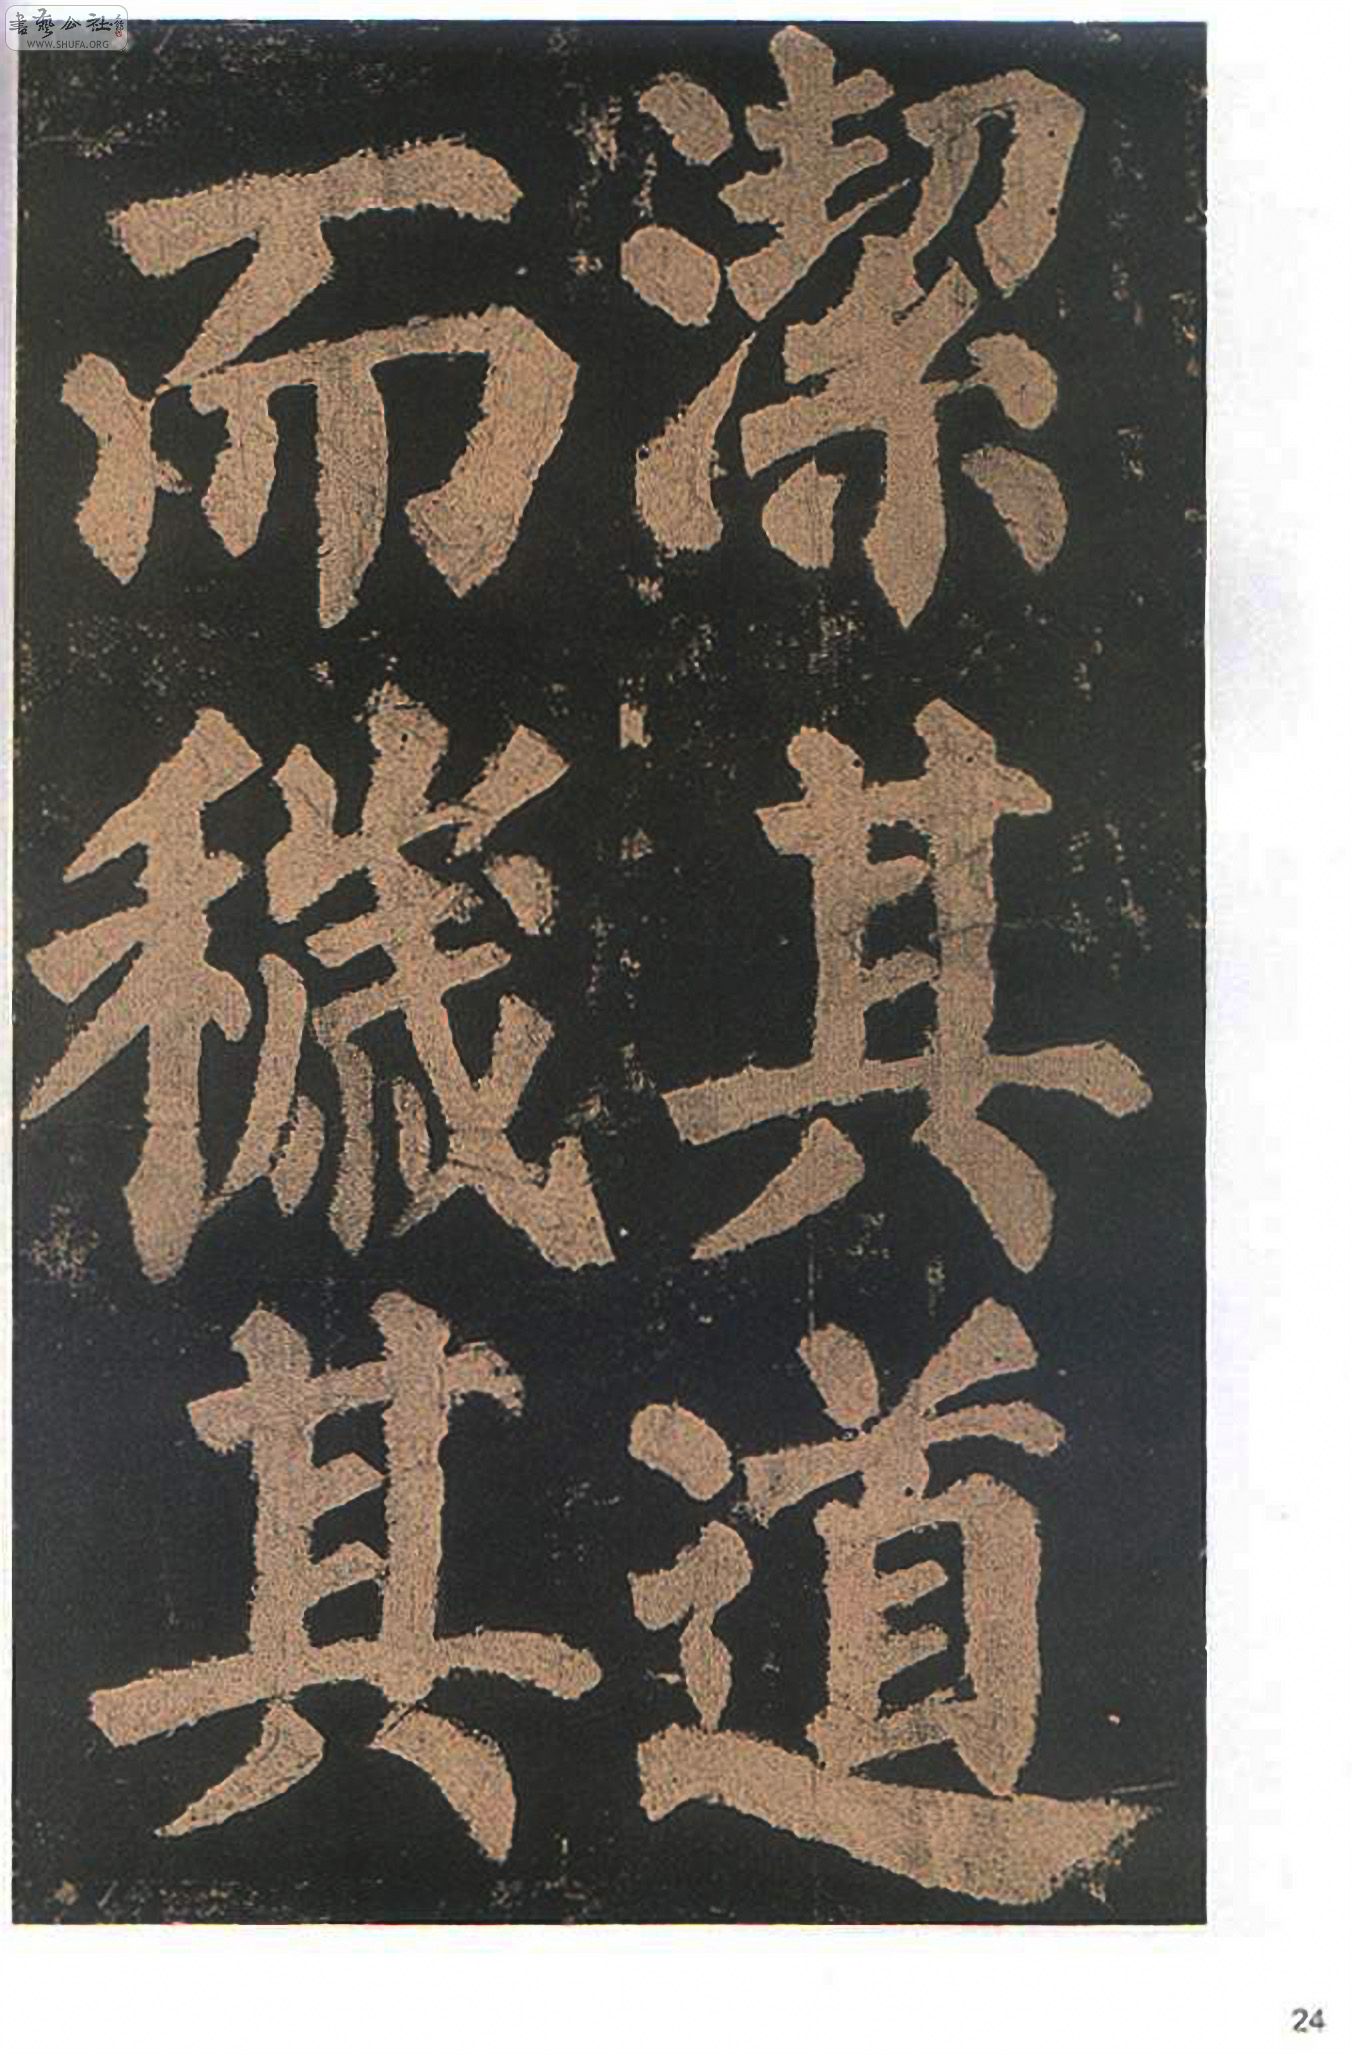 潔其道
而穢其
書藝公社
WWW.SHUFA.ORG
24